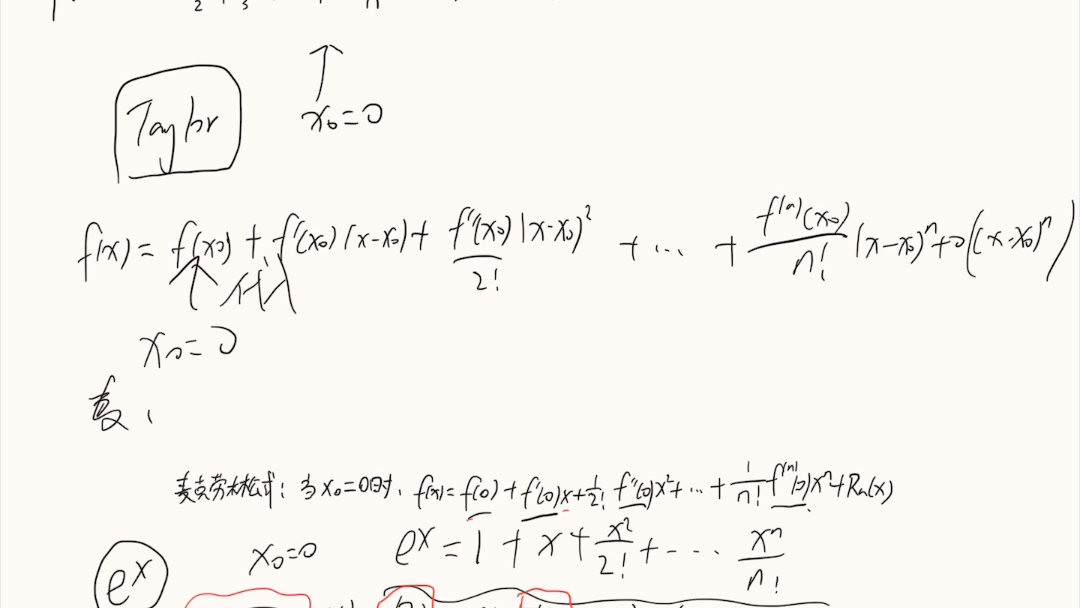 x₀=0
Taylor
f(x) = f(x₀) + f'(x₀)(x-x₀) + f''(x₀)(x-x₀)²/2! + ... + f⁽ⁿ⁾(x₀)/n! (x-x₀)ⁿ + o((x-x₀)ⁿ)
代入
x₀=0
麦克劳林公式：当x₀=0时、f(x)=f(0)+f'(0)x+1/2! f''(0)x²+...+1/n! f⁽ⁿ⁾(0)xⁿ+Rn(x)
eˣ x₀=0 eˣ=1+x+x²/2!+... xⁿ/n!